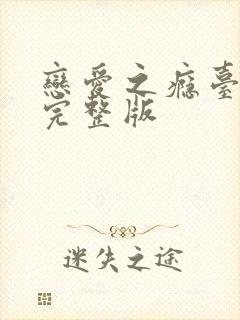 戀愛之癮臺
完整版
迷失之途